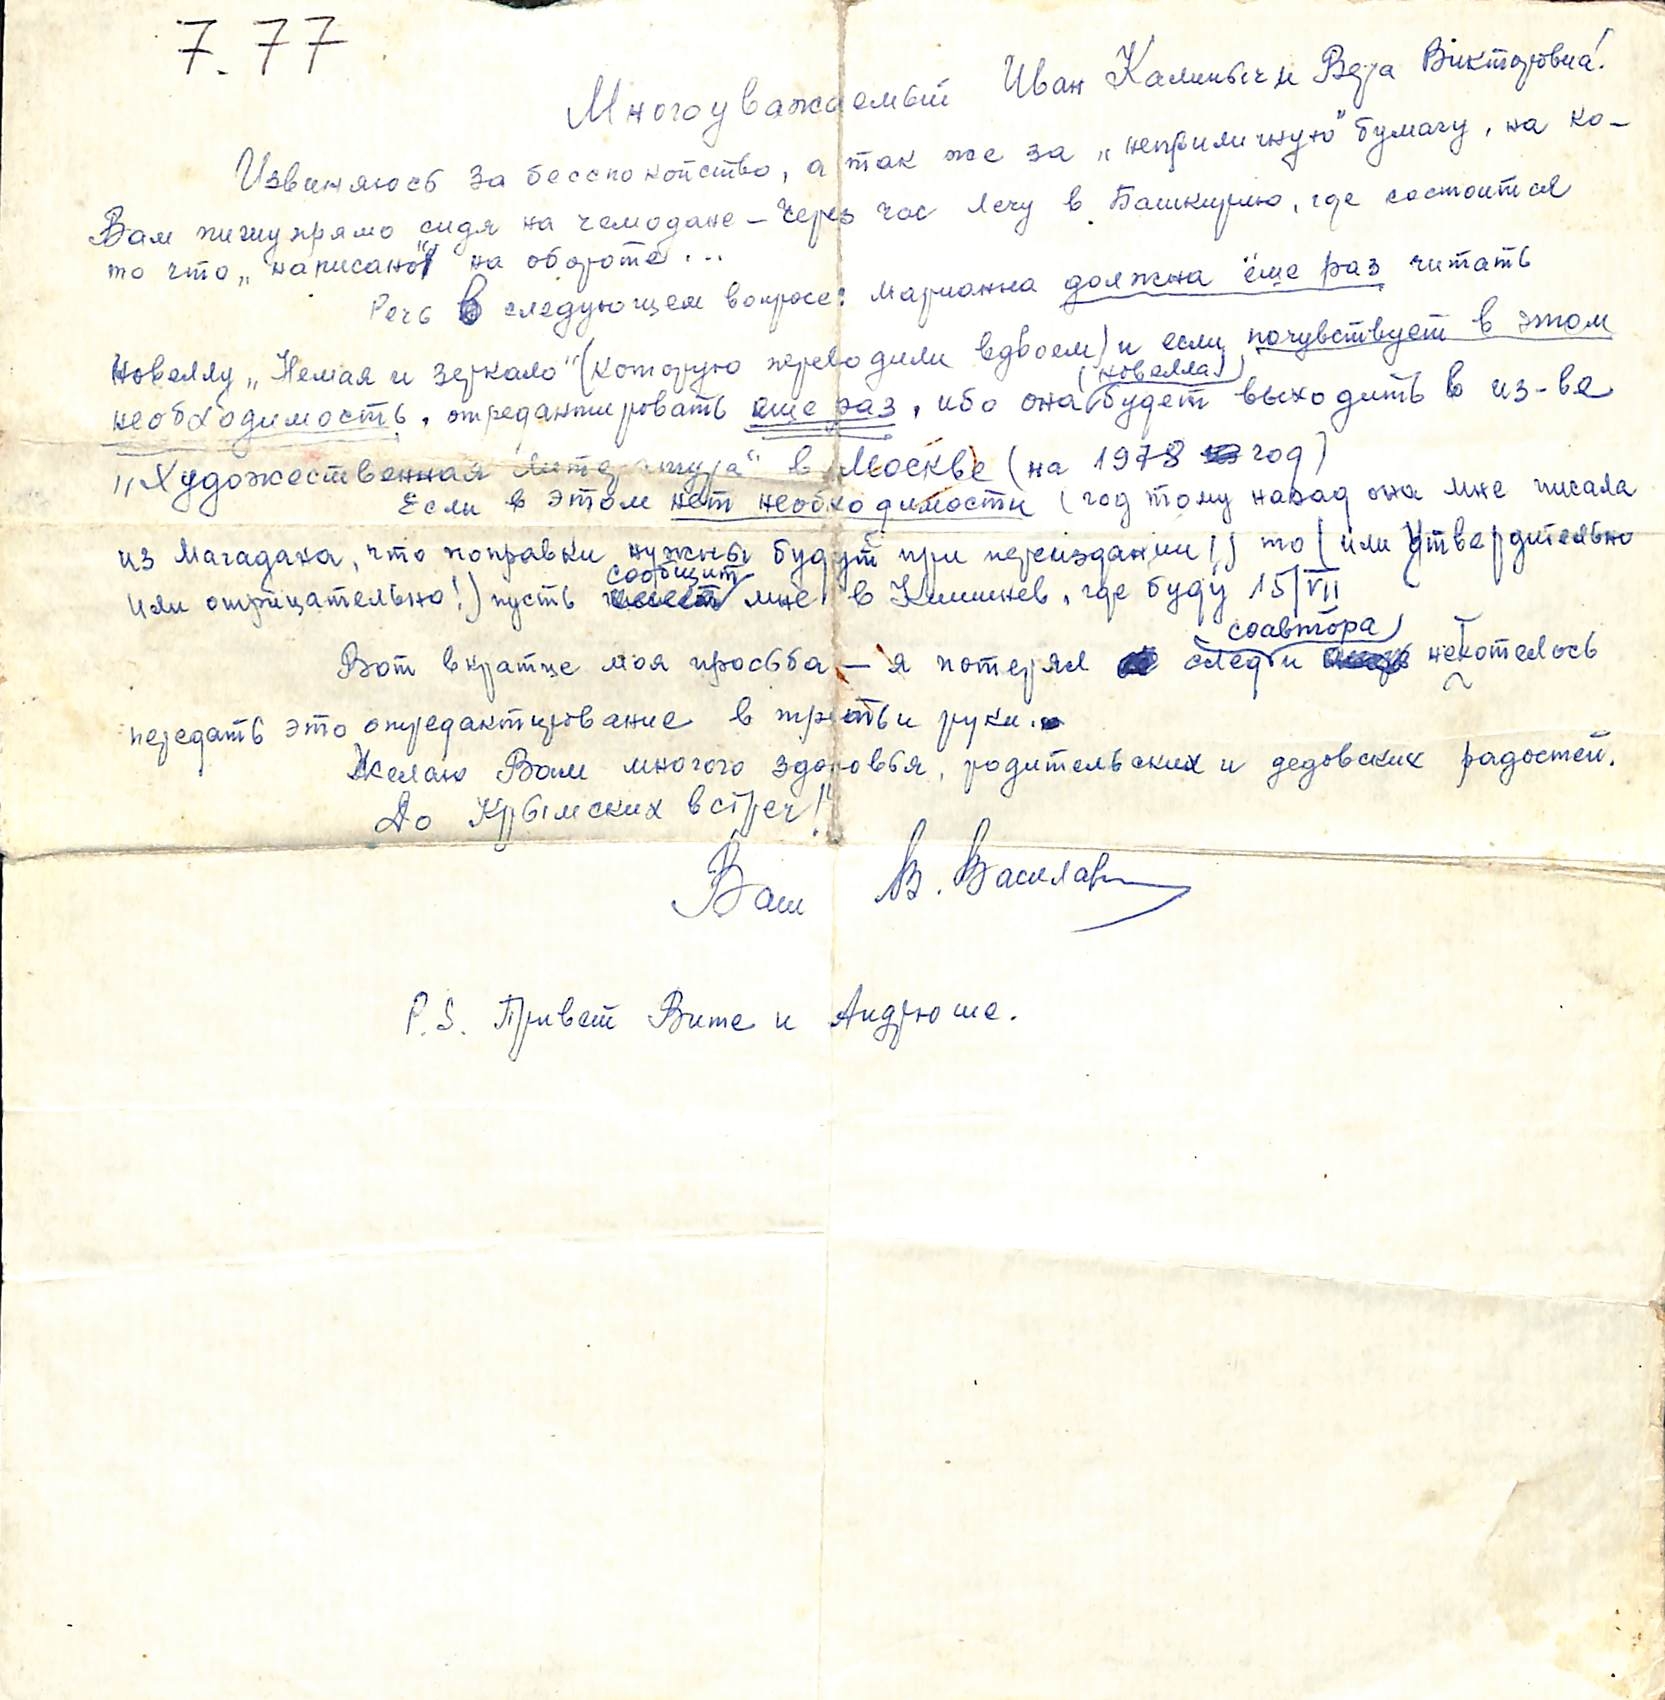 7.77
Многоуважаемый Иван Калиныч и Вера Вiкторовна!
Извиняюсь за бесспокойство, а так же за „неприличную" бумагу, на ко-
Вам пишу прямо сидя на чемодане – Через час лечу в Башкирию, где состоится
то что „написано" на обороте...
Речь в следующем вопросе: Марианна должна ёще раз читать
новеллу „Немая и зеркало" (которую переводили вдвоем) и если почувствует в этом
(новелла)
необходимость, отредактировать еще раз, ибо она будет выходить в из-ве
„Художественная Литература" в Москве (на 1978 год)
Если в этом нет необходимости (год тому назад она мне писала
из Магадана, что поправки нужны будут при переиздании!) то (или утвердительно
сообщит
или отрицательно!) пусть мне в Кишинев, где буду 15/VII
соавтора
Вот вкратце моя просьба – я потерял следы и нехотелось
передать это отредактирование в третьи руки.
Желаю Вам многого здоровья, родительских и дедовских радостей.
До Крымских встреч!
Ваш В. Василаки
P.S. Привет Вите и Андрюше.